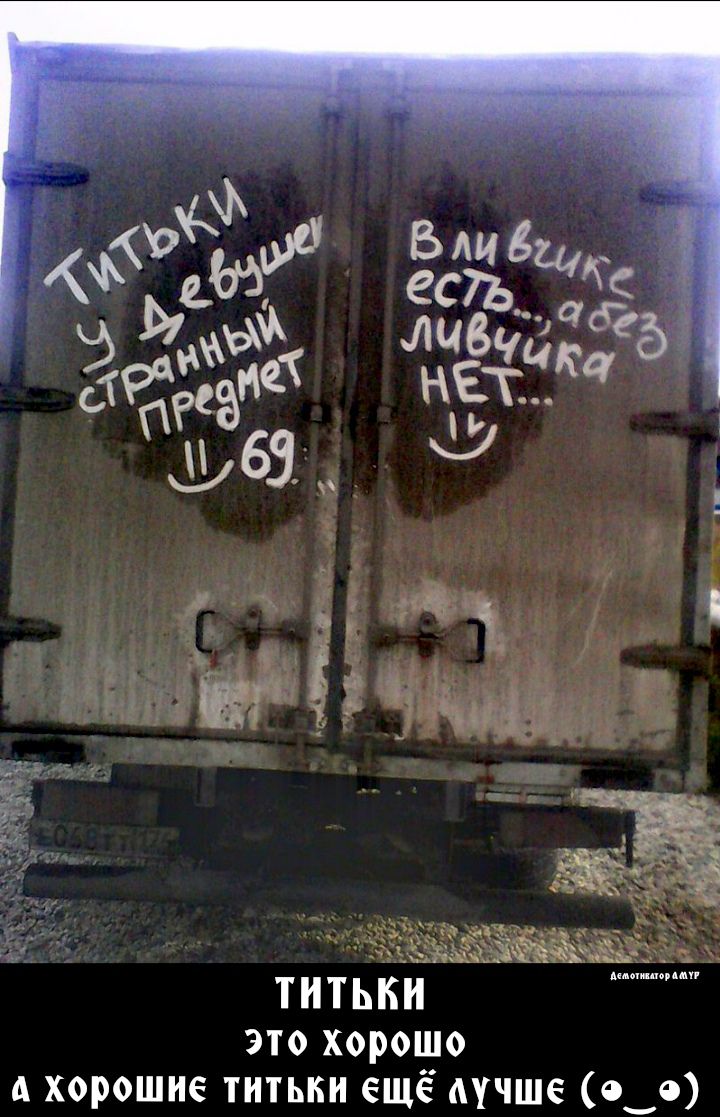 Титьки
у девушек
странный
предмет
69.
В ливчике
есть..., а без
ливчика
НЕТ...
Демотиватор АМУР
ТИТЬКИ
это хорошо
а хорошие титьки ещё лучше (•‿•)